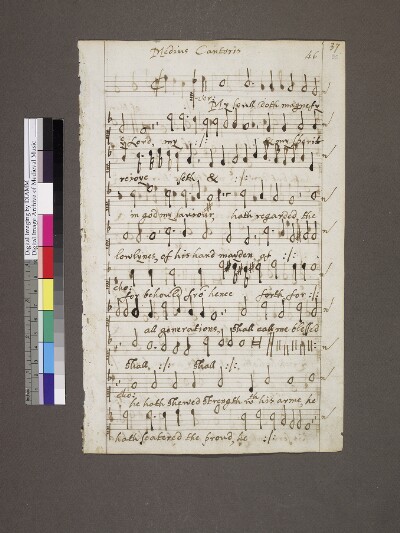 Medius Cantoris
46
37
My soull doth magnefy
ye Lord, my :/: my spirit
reioyc seth & :/:
in god my saviour, hath regarded the
lowlynes, of his hand mayden, of :/:
cho:
for behould fro hence forth for :/:
all generations, shall call me blessed
shall, :/: shall :/:
cho:
he hath shewed strength wth his arme, he
hath scatered the proud, he :/:
Digital Imaging by DIAMM
Digital Image Archive of Medieval Music